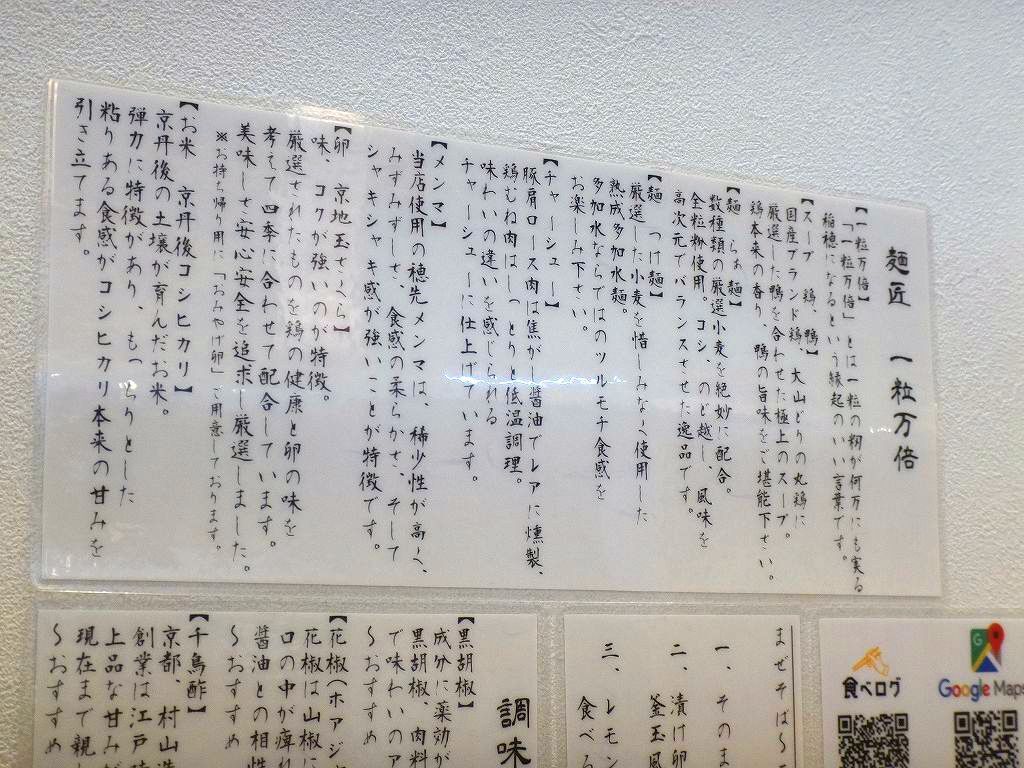 麺匠　一粒万倍
【一粒万倍】
「一粒万倍」とは一粒の籾が何万にも実る
稲穂になるという縁起のいい言葉です。
【スープ　鶏、鴨】
国産ブランド鶏、大山どりの丸鶏に
厳選した鴨を合わせた極上のスープ。
鶏本来の香り、鴨の旨味をご堪能下さい。
【麺　らぁ麺】
数種類の厳選小麦を絶妙に配合。
全粒粉使用。コシ、のど越し、風味を
高次元でバランスさせた逸品です。
【麺　つけ麺】
厳選した小麦を惜しみなく使用した
熟成多加水麺。
多加水ならではのツルモチ食感を
お楽しみ下さい。
【チャーシュー】
豚肩ロース肉は焦がし醤油でレアに燻製、
鶏むね肉はしっとりと低温調理。
味わいの違いを感じられる
チャーシューに仕上げています。
【メンマ】
当店使用の穂先メンマは、稀少性が高く、
みずみずしさ、食感の柔らかさ、そして
シャキシャキ感が強いことが特徴です。
【卵　京地玉さくら】
味、コクが強いのが特徴。
厳選されたものを鶏の健康と卵の味を
考えて四季に合わせて配合しています。
美味しさ安心安全を追求し厳選しました。
※お持ち帰り用に「おみやげ卵」ご用意しております。
【お米　京丹後コシヒカリ】
京丹後の土壌が育んだお米。
弾力に特徴があり、もっちりとした
粘りある食感がコシヒカリ本来の甘みを
引き立てます。
調味
【黒胡椒】
成分に薬効が
黒胡椒、肉料
で味わいのア
〜おすすめ
【花椒(ホアジャ
花椒は山椒に
口の中が痺れ
醤油との相性
〜おすすめ
【千鳥酢】
京都、村山造
創業は江戸時
上品な甘みが
現在まで親し
〜おすすめ
まぜそば〜
一、そのま
二、漬け卵
釜玉風
三、レモン
食べる
食べログ
Google Maps